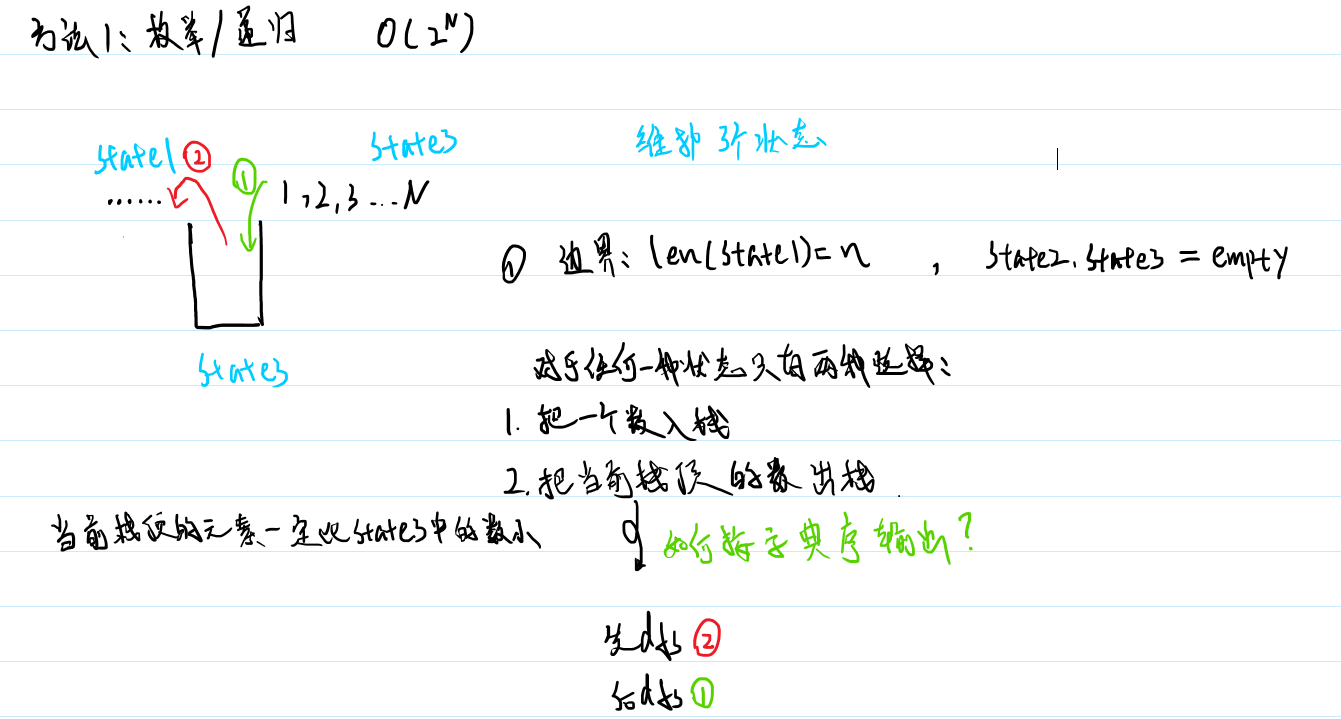 方法1：枚举/递归 O(2^N)
state1 ② ① state3 维护3个状态
…… 1,2,3...N
① 边界：len(state1)=n , state2.state3 = empty
state3
对于任何一种状态只有两种选择：
1. 把一个数入栈
2. 把当前栈顶的数出栈
当前栈顶的元素一定比state3中的数小
如何按字典序输出?
先dfs ②
后dfs ①